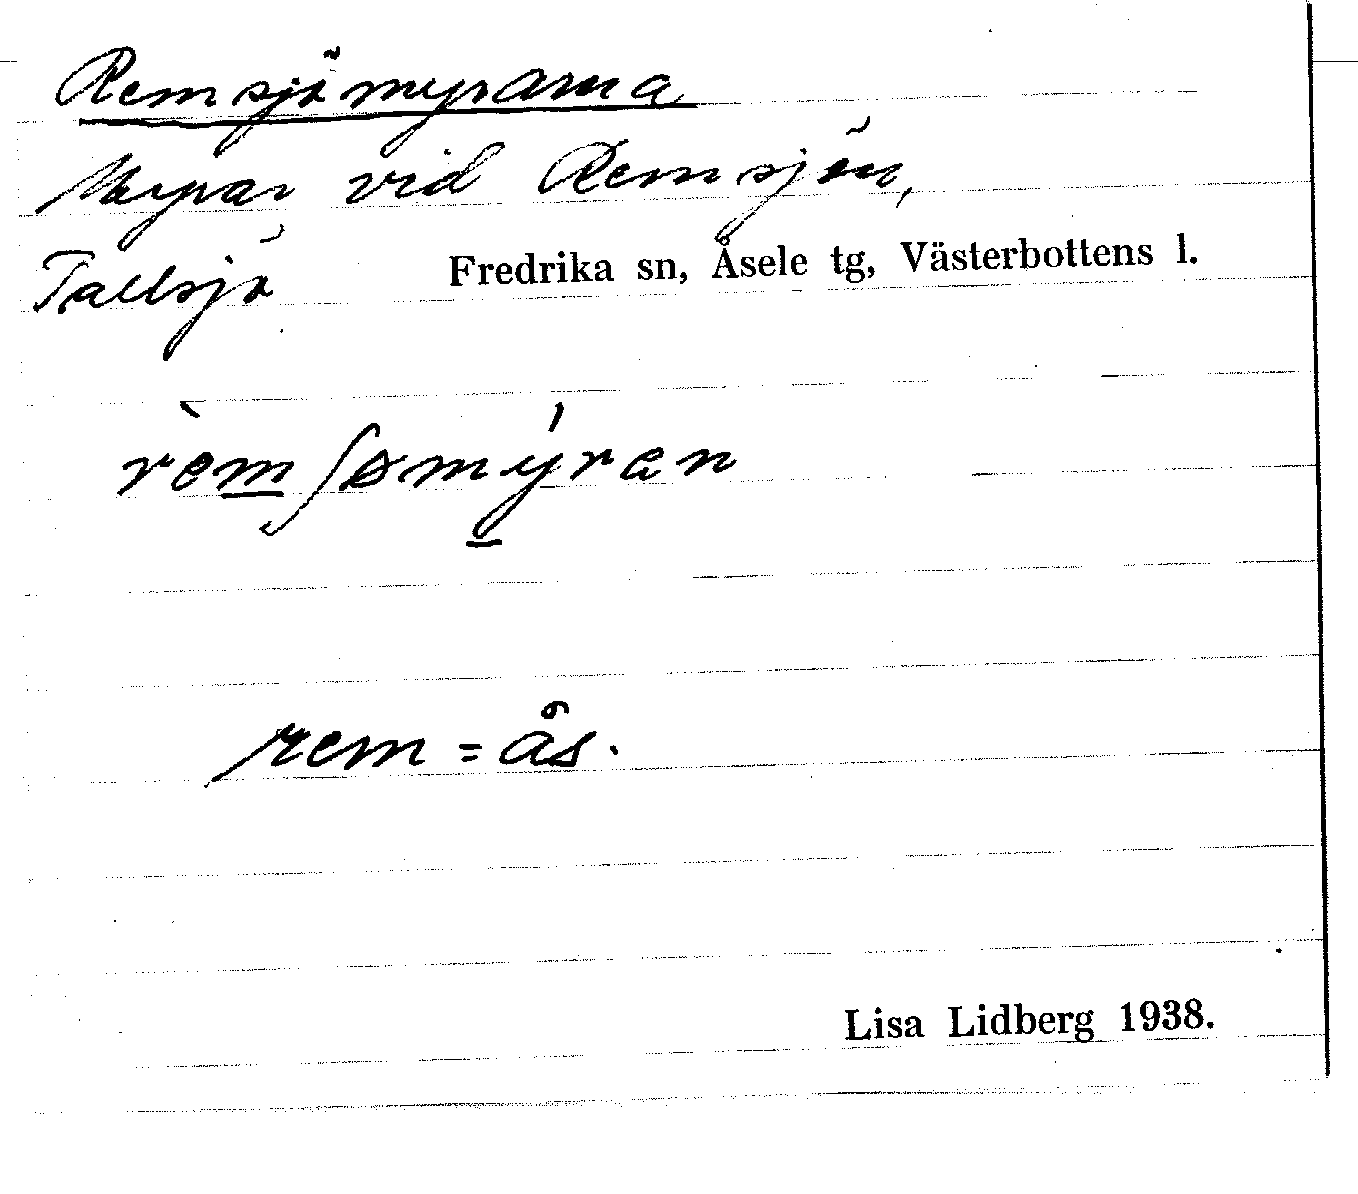 Remsjömyrarna
Myrar vid Remsjön,
Tallsjö Fredrika sn, Åsele tg, Västerbottens l.
rèm̲ʃømý̲ran
rem = ås.
Lisa Lidberg 1938.